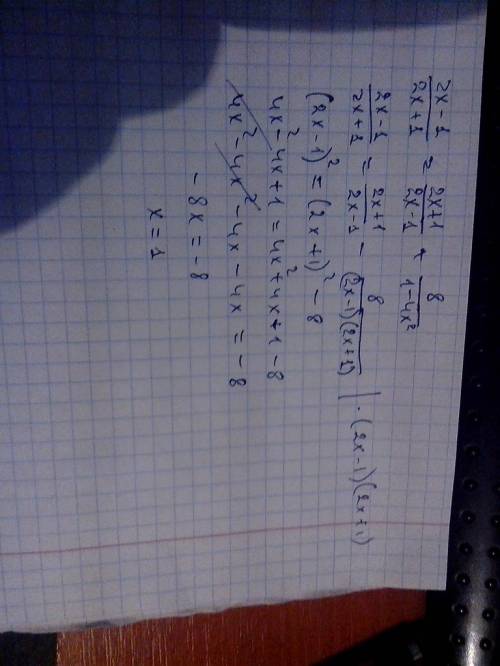 (2x - 1)/(2x + 1) = (2x + 1)/(2x - 1) + 8/(1 - 4x²)
(2x - 1)/(2x + 1) = (2x + 1)/(2x - 1) - 8/((2x - 1)(2x + 1)) | · (2x - 1)(2x + 1)
(2x - 1)² = (2x + 1)² - 8
4x² - 4x + 1 = 4x² + 4x + 1 - 8
4x² - 4x² - 4x - 4x = - 8
- 8x = - 8
x = 1